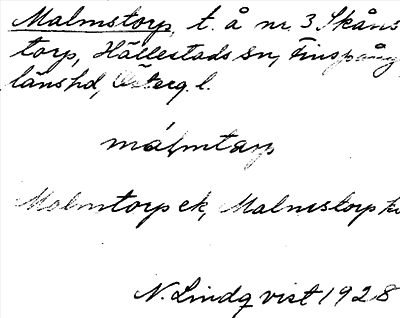 Malmstorp, t. å nr. 3 Skåns
torp, Hällestads sn, Finspång
läns hd, Österg. l.
málmtarp
Malmtorp ek, Malmstorp
N. Lindqvist 1928